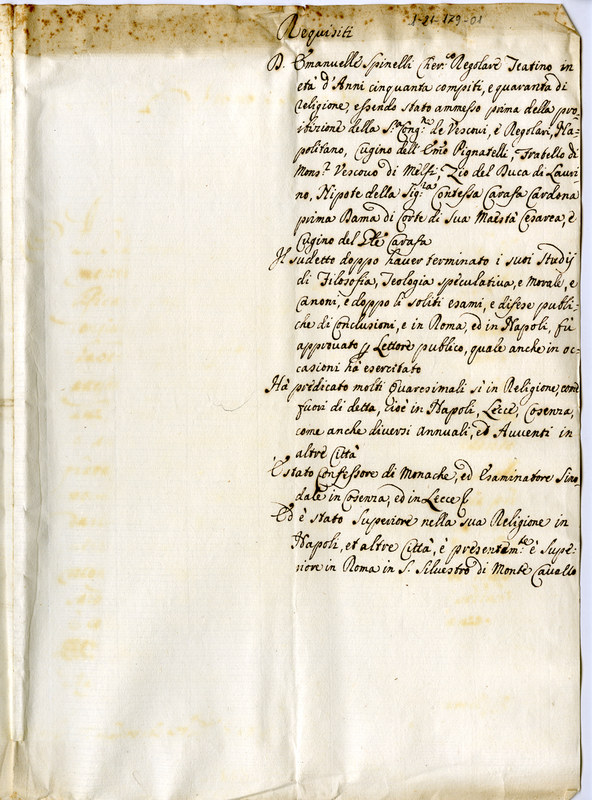 1-21-179-01
Requisiti
D. Emanuelle Spinelli Cher.co Regolare Teatino in
età d'Anni cinquanta compiti, e quaranta di
religione, essendo stato ammesso prima della pro-
ibizione della S.a Cong.ne de Vescovi, è Regolari, Na-
politano, Cugino dell'Emo Pignatelli, Fratello di
Mons.r Vescovo di Melfi, Zio del Duca di Lauri
no, Nipote della Sig.ra Contessa Carafa Cardona
prima Dama di Corte di Sua Maestà Cesarea, è
Cugino del Carafa
Il sudetto doppo haver terminato i suoi Studij
di Filosofia, Teologia speculativa, e morale, e
Canoni, e doppo li soliti esami, e difese publi-
che di Conclusioni, e in Roma, ed in Napoli, fù
approvato p Lettore publico, quale anche in oc-
casioni hà esercitato
Hà predicato molti Quaresimali sì in Religione, come
fuori di detta, cioè in Napoli, Lecce, Cosenza,
come anche diversi annuali, ed Avventi in
altre Città
E stato Confessore di Monache, ed Esaminatore Sino-
dale in Cosenza, ed in Lecce
Ed è stato Superiore nella sua Religione in
Napoli, et altre Città, è presentem.te è Supe-
riore in Roma in S. Silvestro di Monte Cavallo